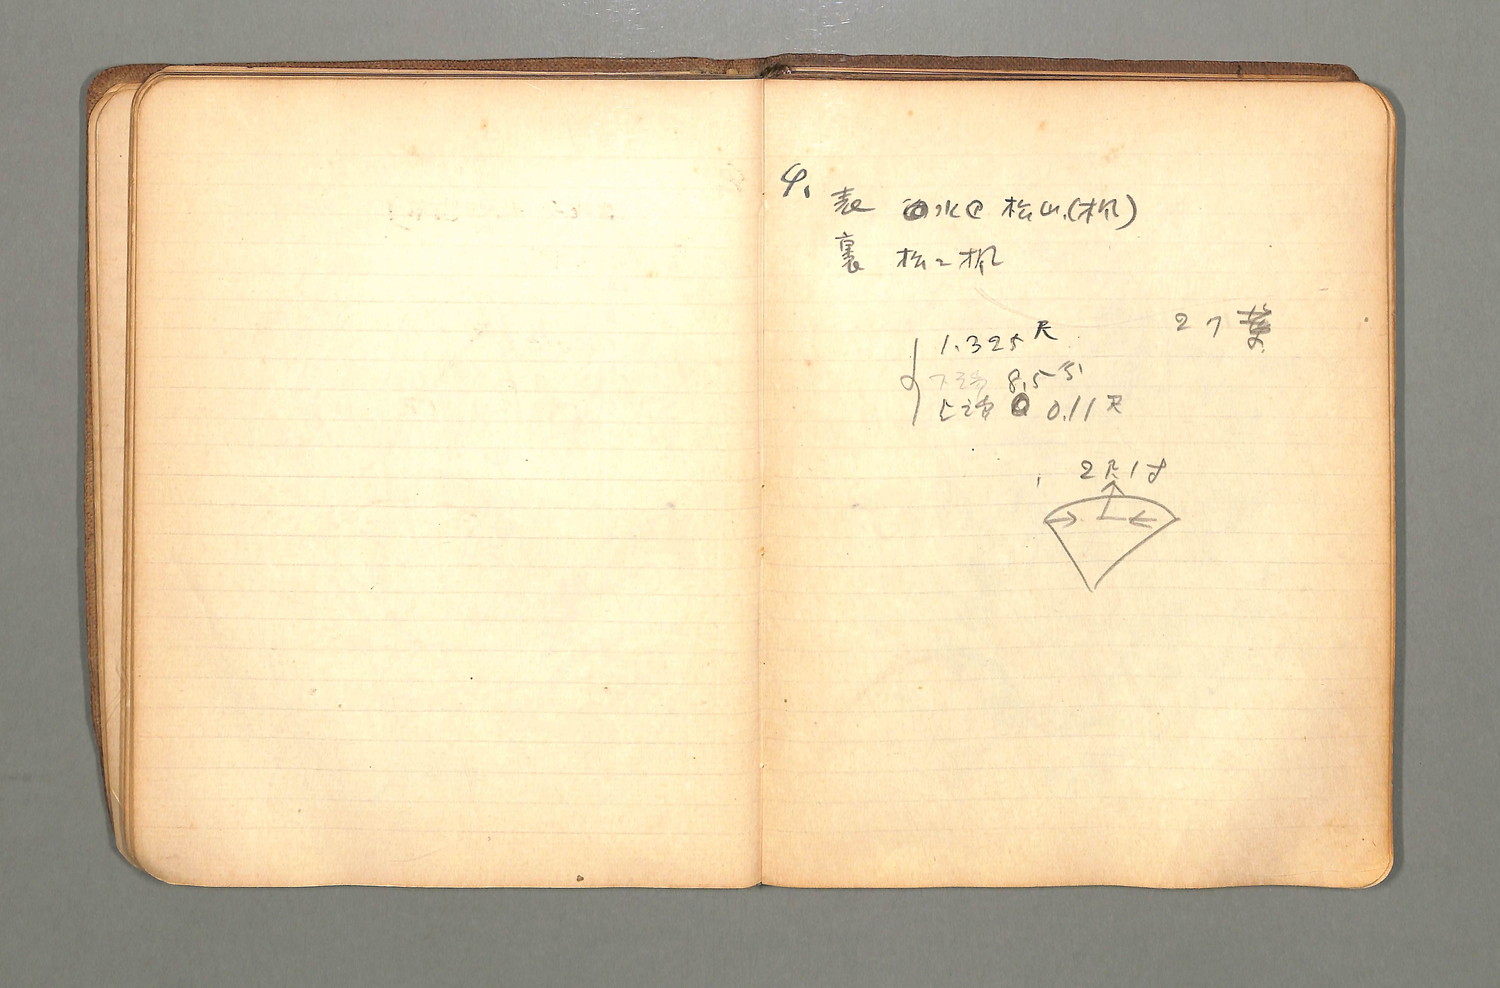 4. 表 水 松山(楓)
裏 松ニ楓
27葉
1.325尺
下端 8.5分
上端 0.11尺
2尺1寸